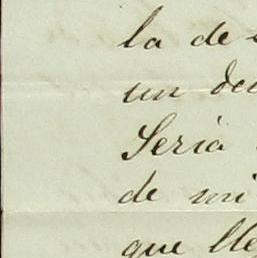 la de
un de
Seria
de mi
que lle